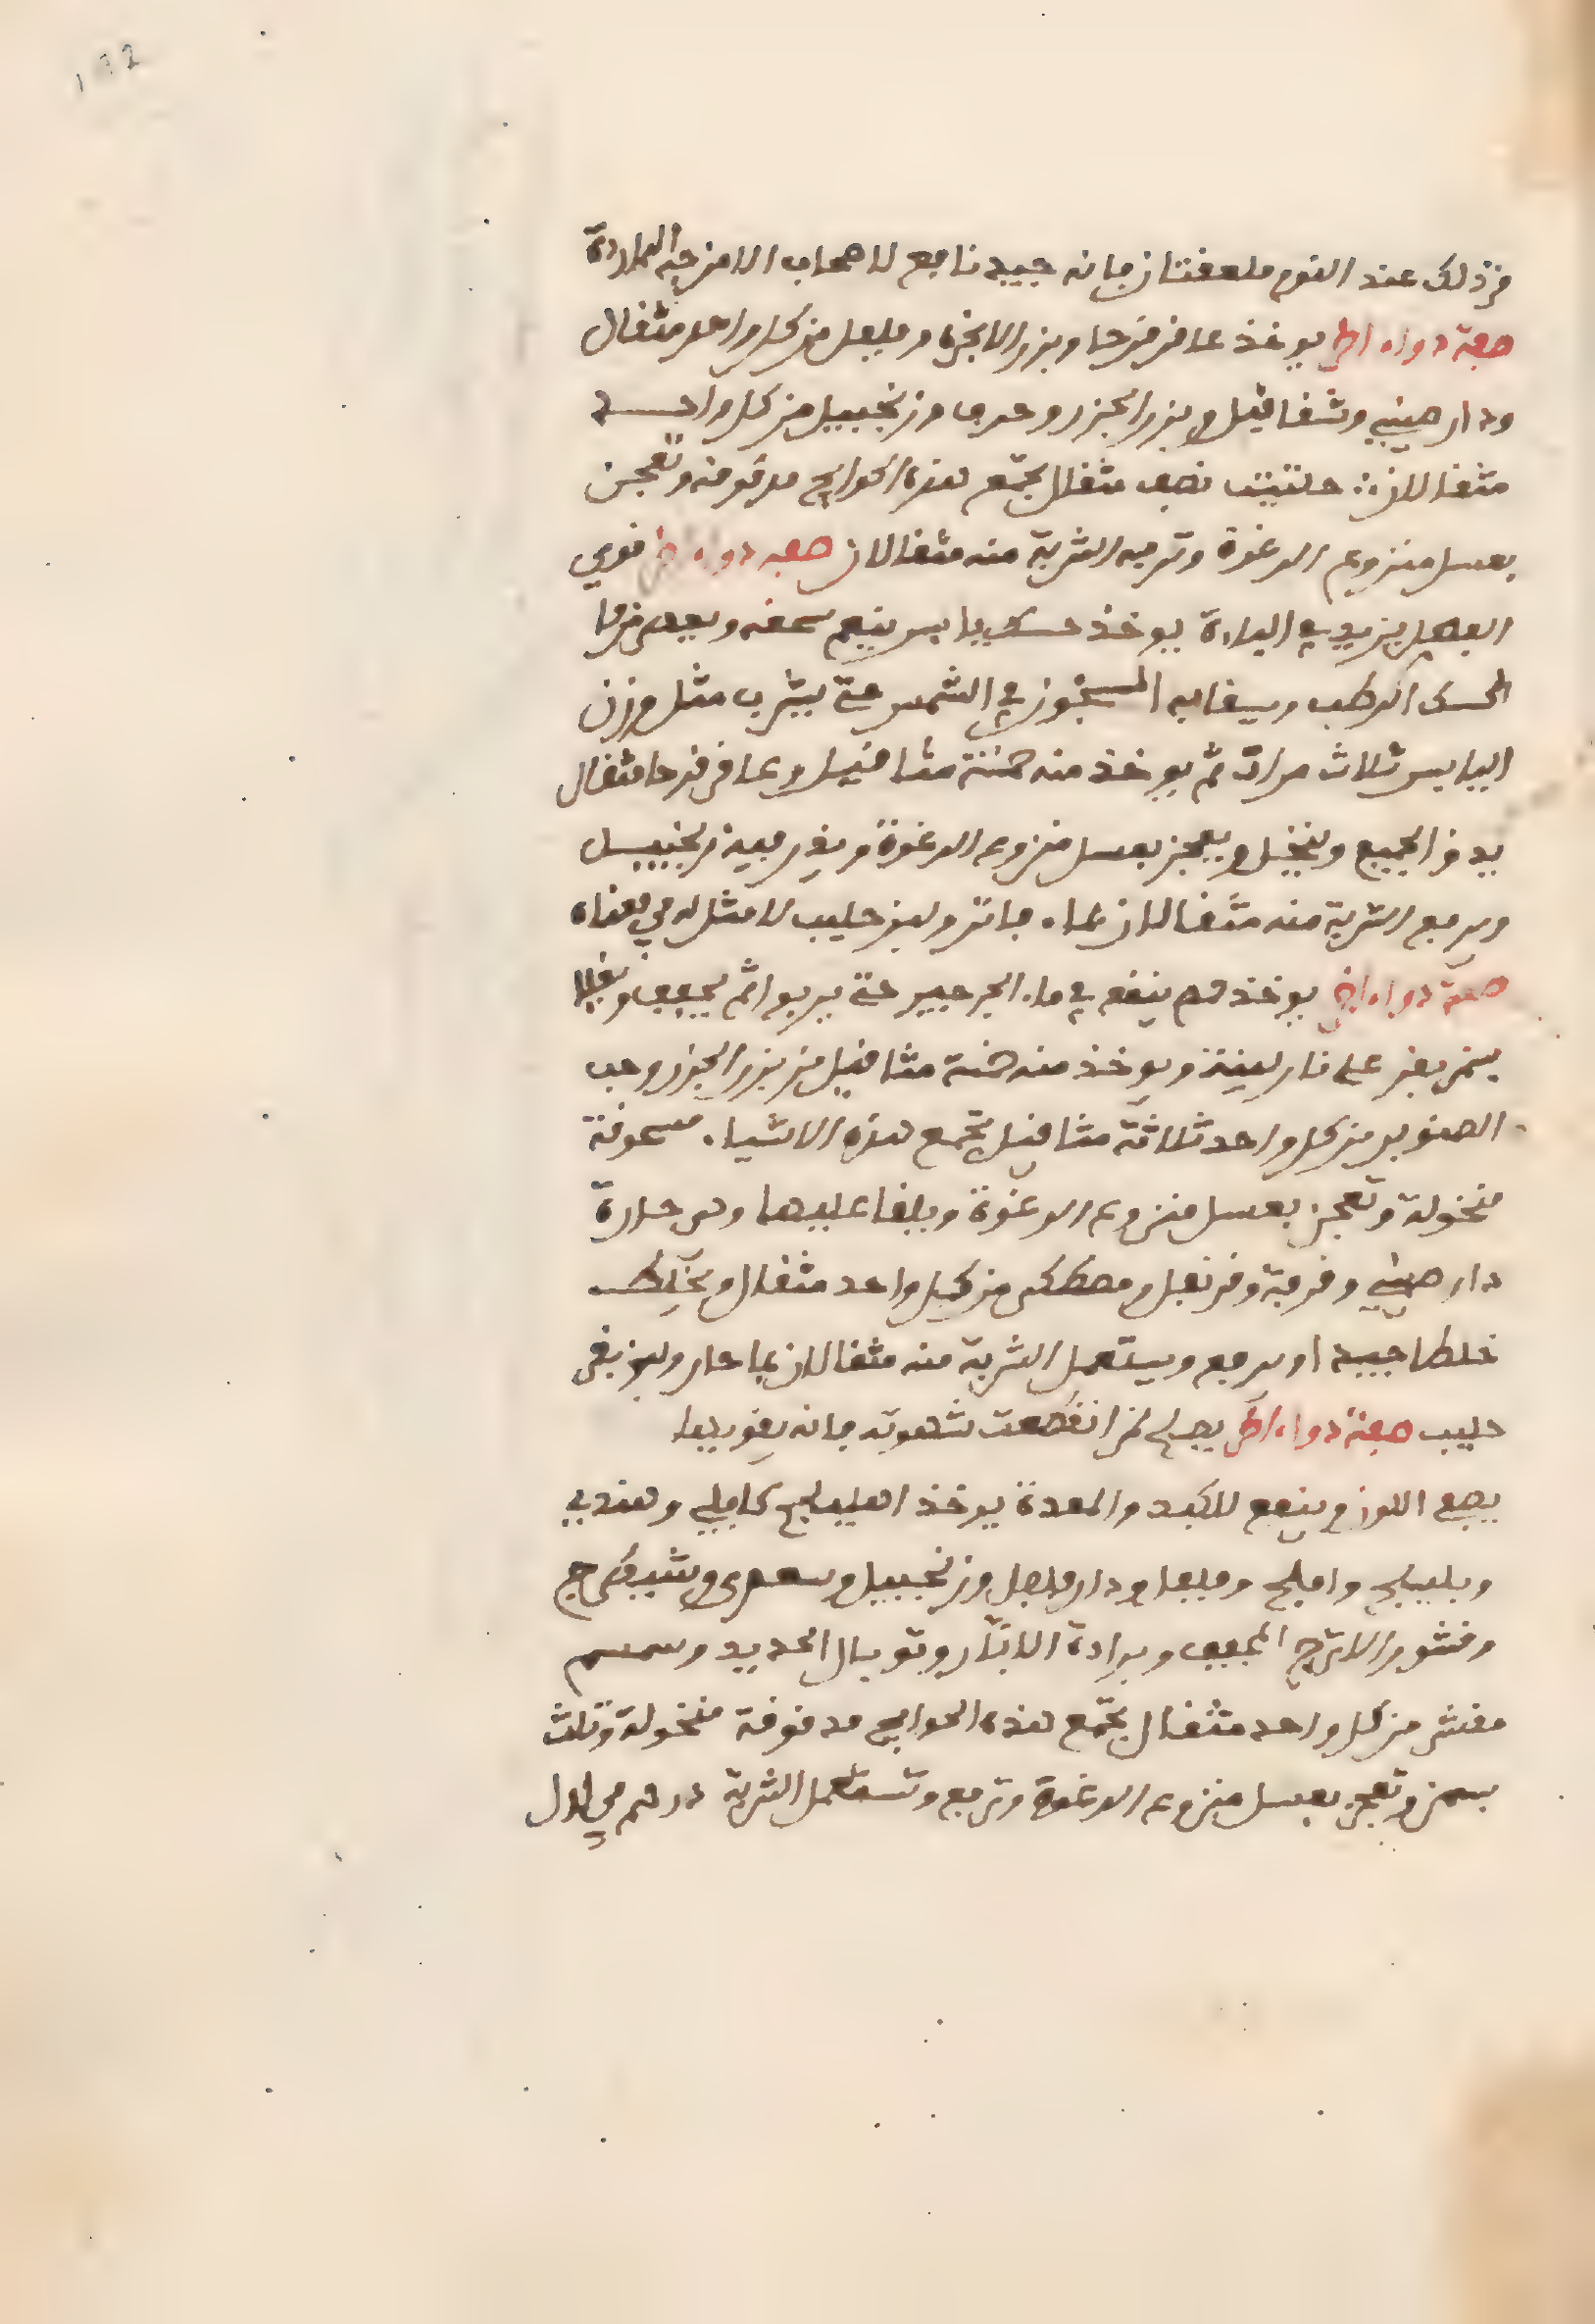 132
من ذلك عند النوم ملعقتان فانه جيد نافع لاصحاب الامزجة الباردة
صفة دواء اخر يوخذ عاقر قرحا وبزر الانجرة وفلفل من كل واحد مثقال
ودار صيني وشقاقل وبزر الجزر وحرف وزنجبيل من كل واحد
مثقالان حلتيت نصف مثقال تجمع هذه الحوايج مدقوقة وتعجن
بعسل منزوع الرغوة وترفع الشربة منه مثقالان صفة دواء اخر قوي
الفعل يزيد في الباءة يوخذ حسك يابس ينعم سحقه ويعصر من ماء
الحسك الرطب ويسقا به المسحوق في الشمس حتى يشرب مثل وزن
اليابس ثلاث مرات ثم يوخذ منه خمسة مثاقيل وعاقر قرحا مثقال
يدق الجميع وينخل ويعجن بعسل منزوع الرغوة وفيه زنجبيل
ويرفع الشربة منه مثقالان بماء فاتر ولبن حليب لا مثل له في معناه
صفة دواء اخر يوخذ حمص ينقع في ماء الجرجير حتى يربوا ثم يجفف ويقلا
بسمن بقر على نار لينة ويوخذ منه خمسة مثاقيل من بزر الجزر وحب
الصنوبر من كل واحد ثلاثة مثاقيل تجمع هذه الاشياء مسحوقة
منخولة وتعجن بعسل منزوع الرغوة ويلقا عليها وهي حارة
دار صيني وقرفة وقرنفل ومصطكى من كل واحد مثقال ويخلط
خلطا جيدا ويرفع ويستعمل الشربة منه مثقالان بما حار ولبن بقر
حليب صفة دواء اخر يصلح لمن انقطعت شهوته فانه يقويها
يصفي اللون وينفع للكبد والمعدة يوخذ اهليلج كابلي وهندي
وبليلج واملج وفلفل ودار فلفل وزنجبيل وسعدى وشيطرج
وقشور الاترج المجفف وبرادة الابار وتوبال الحديد وسمسم
مقشر من كل واحد مثقال تجمع هذه الحوايج مدقوقة منخولة وتلت
بسمن وتعجن بعسل منزوع الرغوة وترفع وتستعمل الشربة درهم في اول